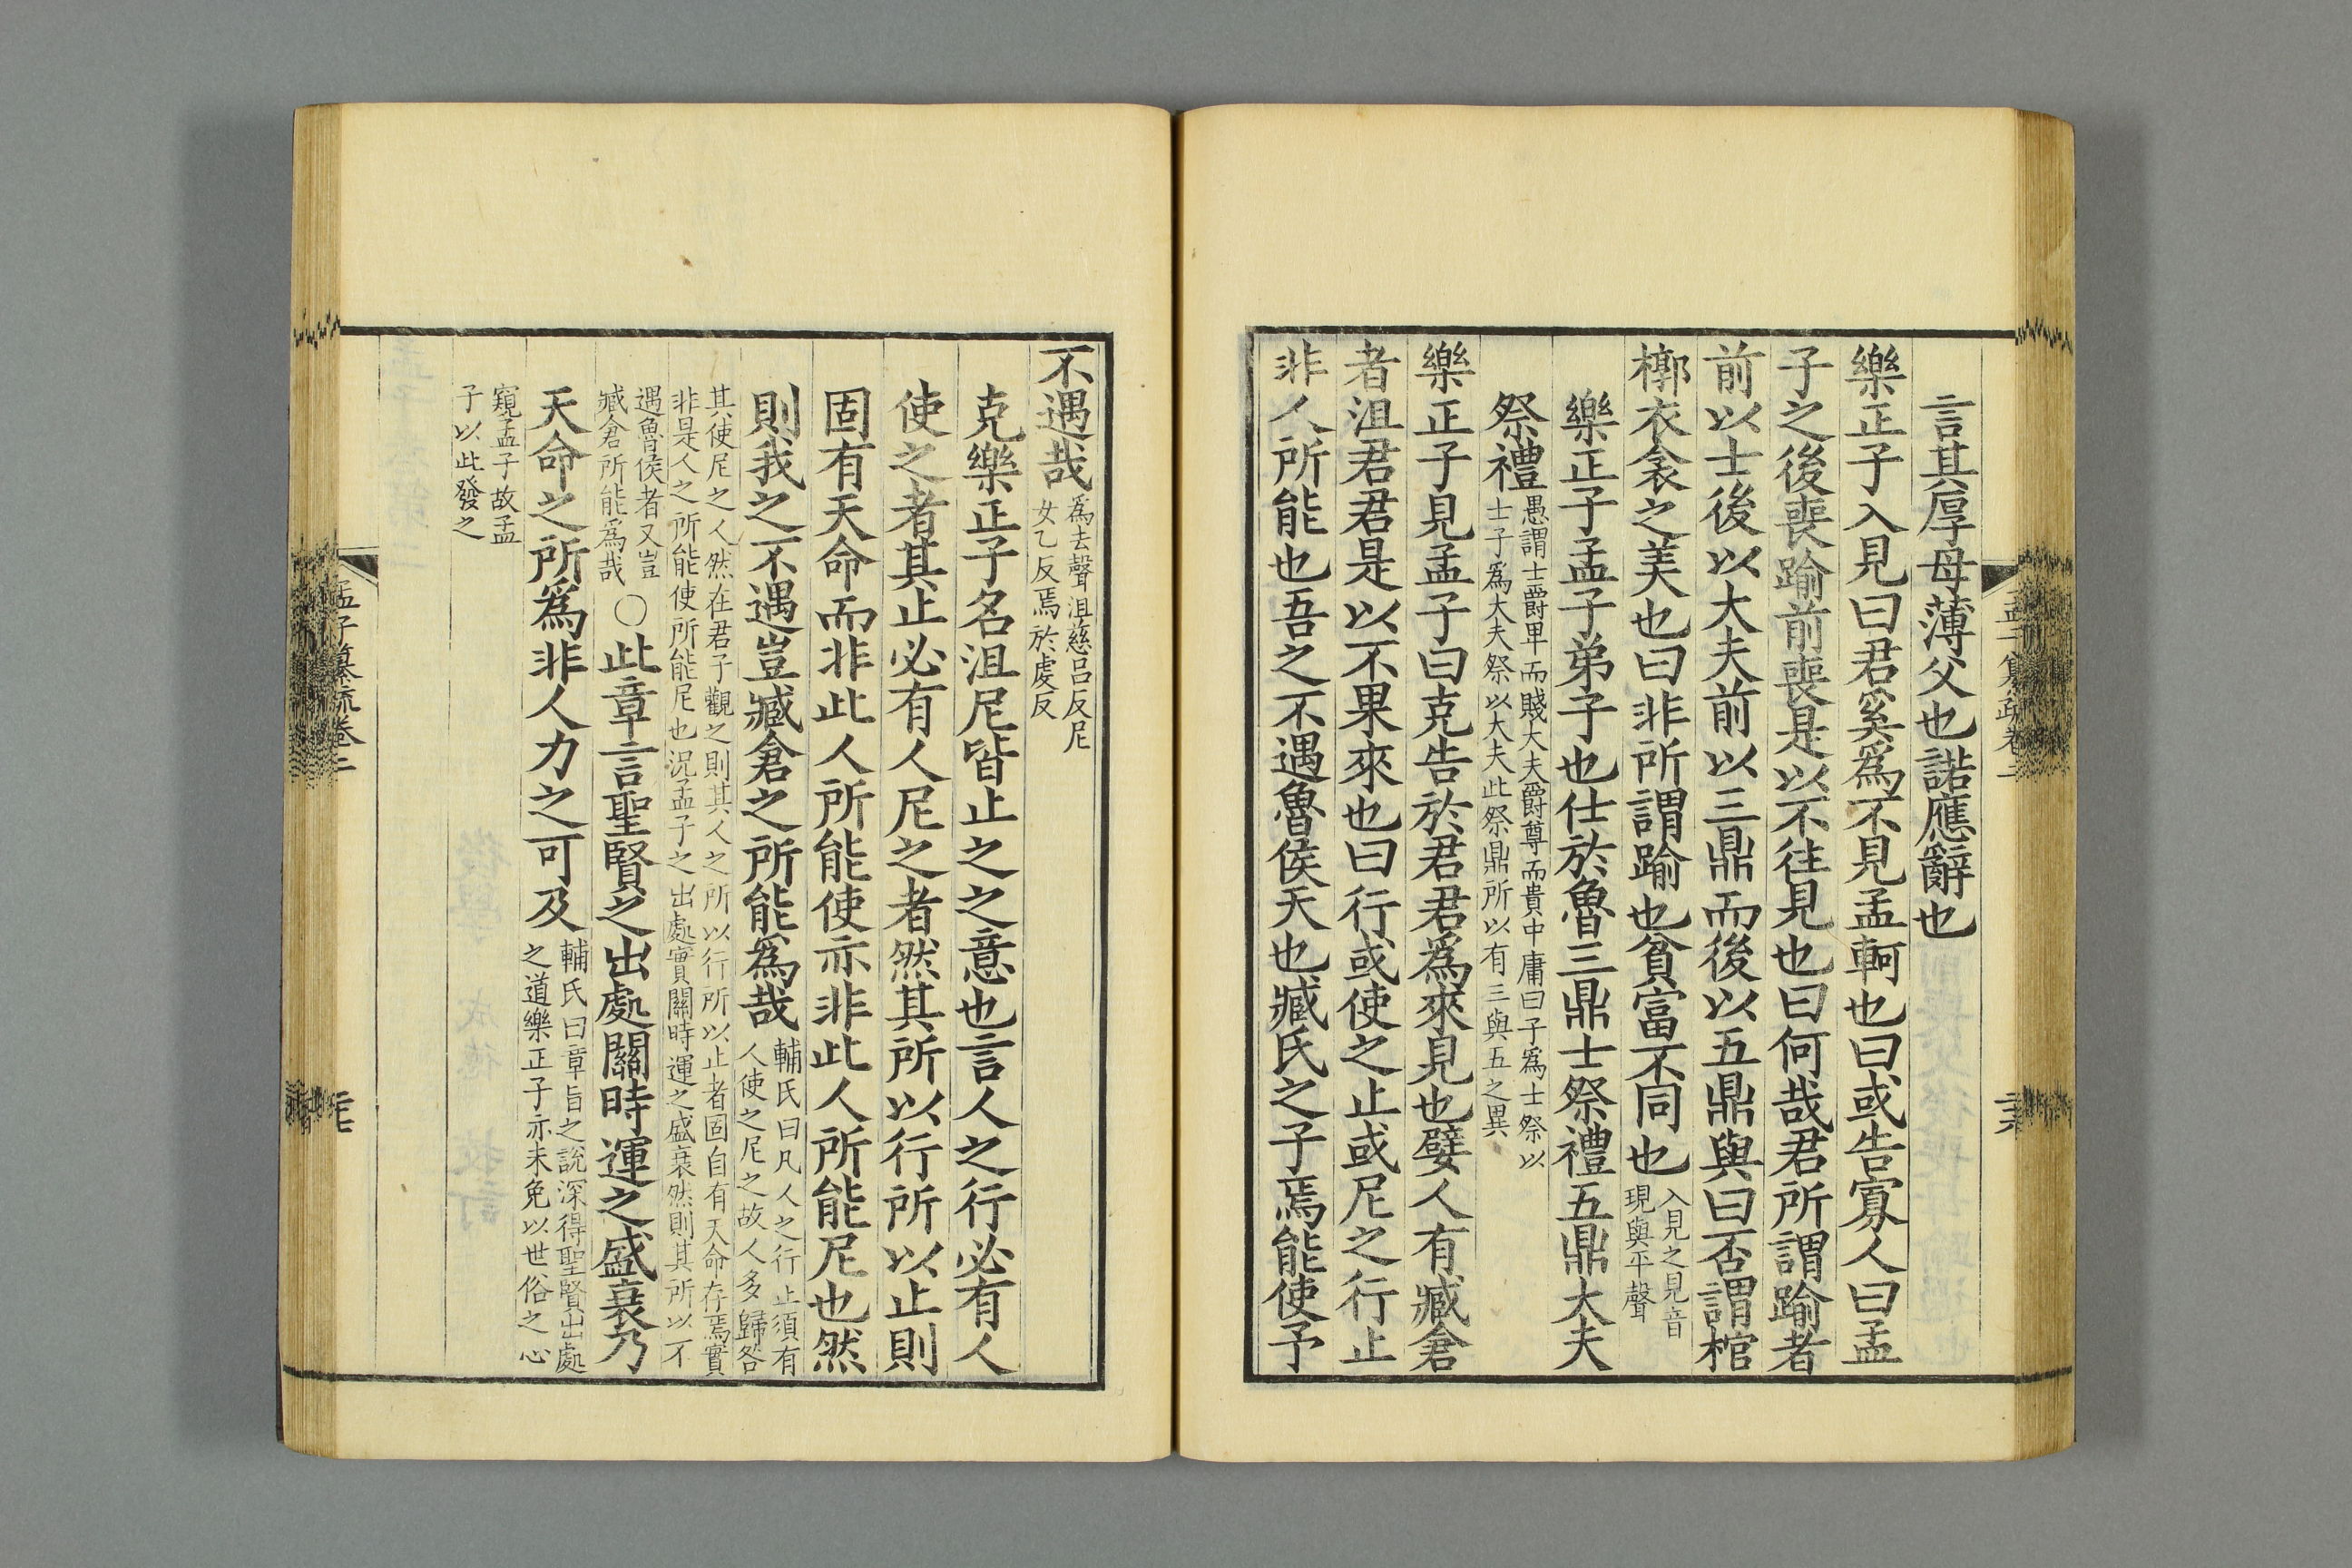 言其厚母薄父也諾應辭也
樂正子入見曰君奚爲不見孟軻也曰或告寡人曰孟
子之後喪踰前喪是以不往見也曰何哉君所謂踰者
前以士後以大夫前以三鼎而後以五鼎與曰否謂棺
槨衣衾之美也曰非所謂踰也貧富不同也入見之見音
現與平聲
樂正子孟子弟子也仕於魯三鼎士祭禮五鼎大夫
祭禮愚謂士爵卑而賤大夫爵尊而貴中庸曰子爲士祭以
士子爲大夫祭以大夫此祭鼎所以有三與五之異
樂正子見孟子曰克告於君君爲來見也嬖人有臧倉
者沮君君是以不果來也曰行或使之止或尼之行止
非人所能也吾之不遇魯侯天也臧氏之子焉能使予
不遇哉爲去聲沮慈呂反尼
女乙反焉於虔反
克樂正子名沮尼皆止之之意也言人之行必有人
使之者其止必有人尼之者然其所以行所以止則
固有天命而非此人所能使亦非此人所能尼也然
則我之不遇豈臧倉之所能爲哉輔氏曰凡人之行止須有
人使之尼之故人多歸咎
其使尼之人然在君子觀之則其人之所以行所以止者固自有天命存焉實
非是人之所能使所能尼也況孟子之出處實關時運之盛衰然則其所以不
遇魯侯者又豈
臧倉所能爲哉○此章言聖賢之出處關時運之盛衰乃
天命之所爲非人力之可及輔氏曰章旨之說深得聖賢出處
之道樂正子亦未免以世俗之心
窺孟子故孟
子以此發之
孟子纂疏卷二